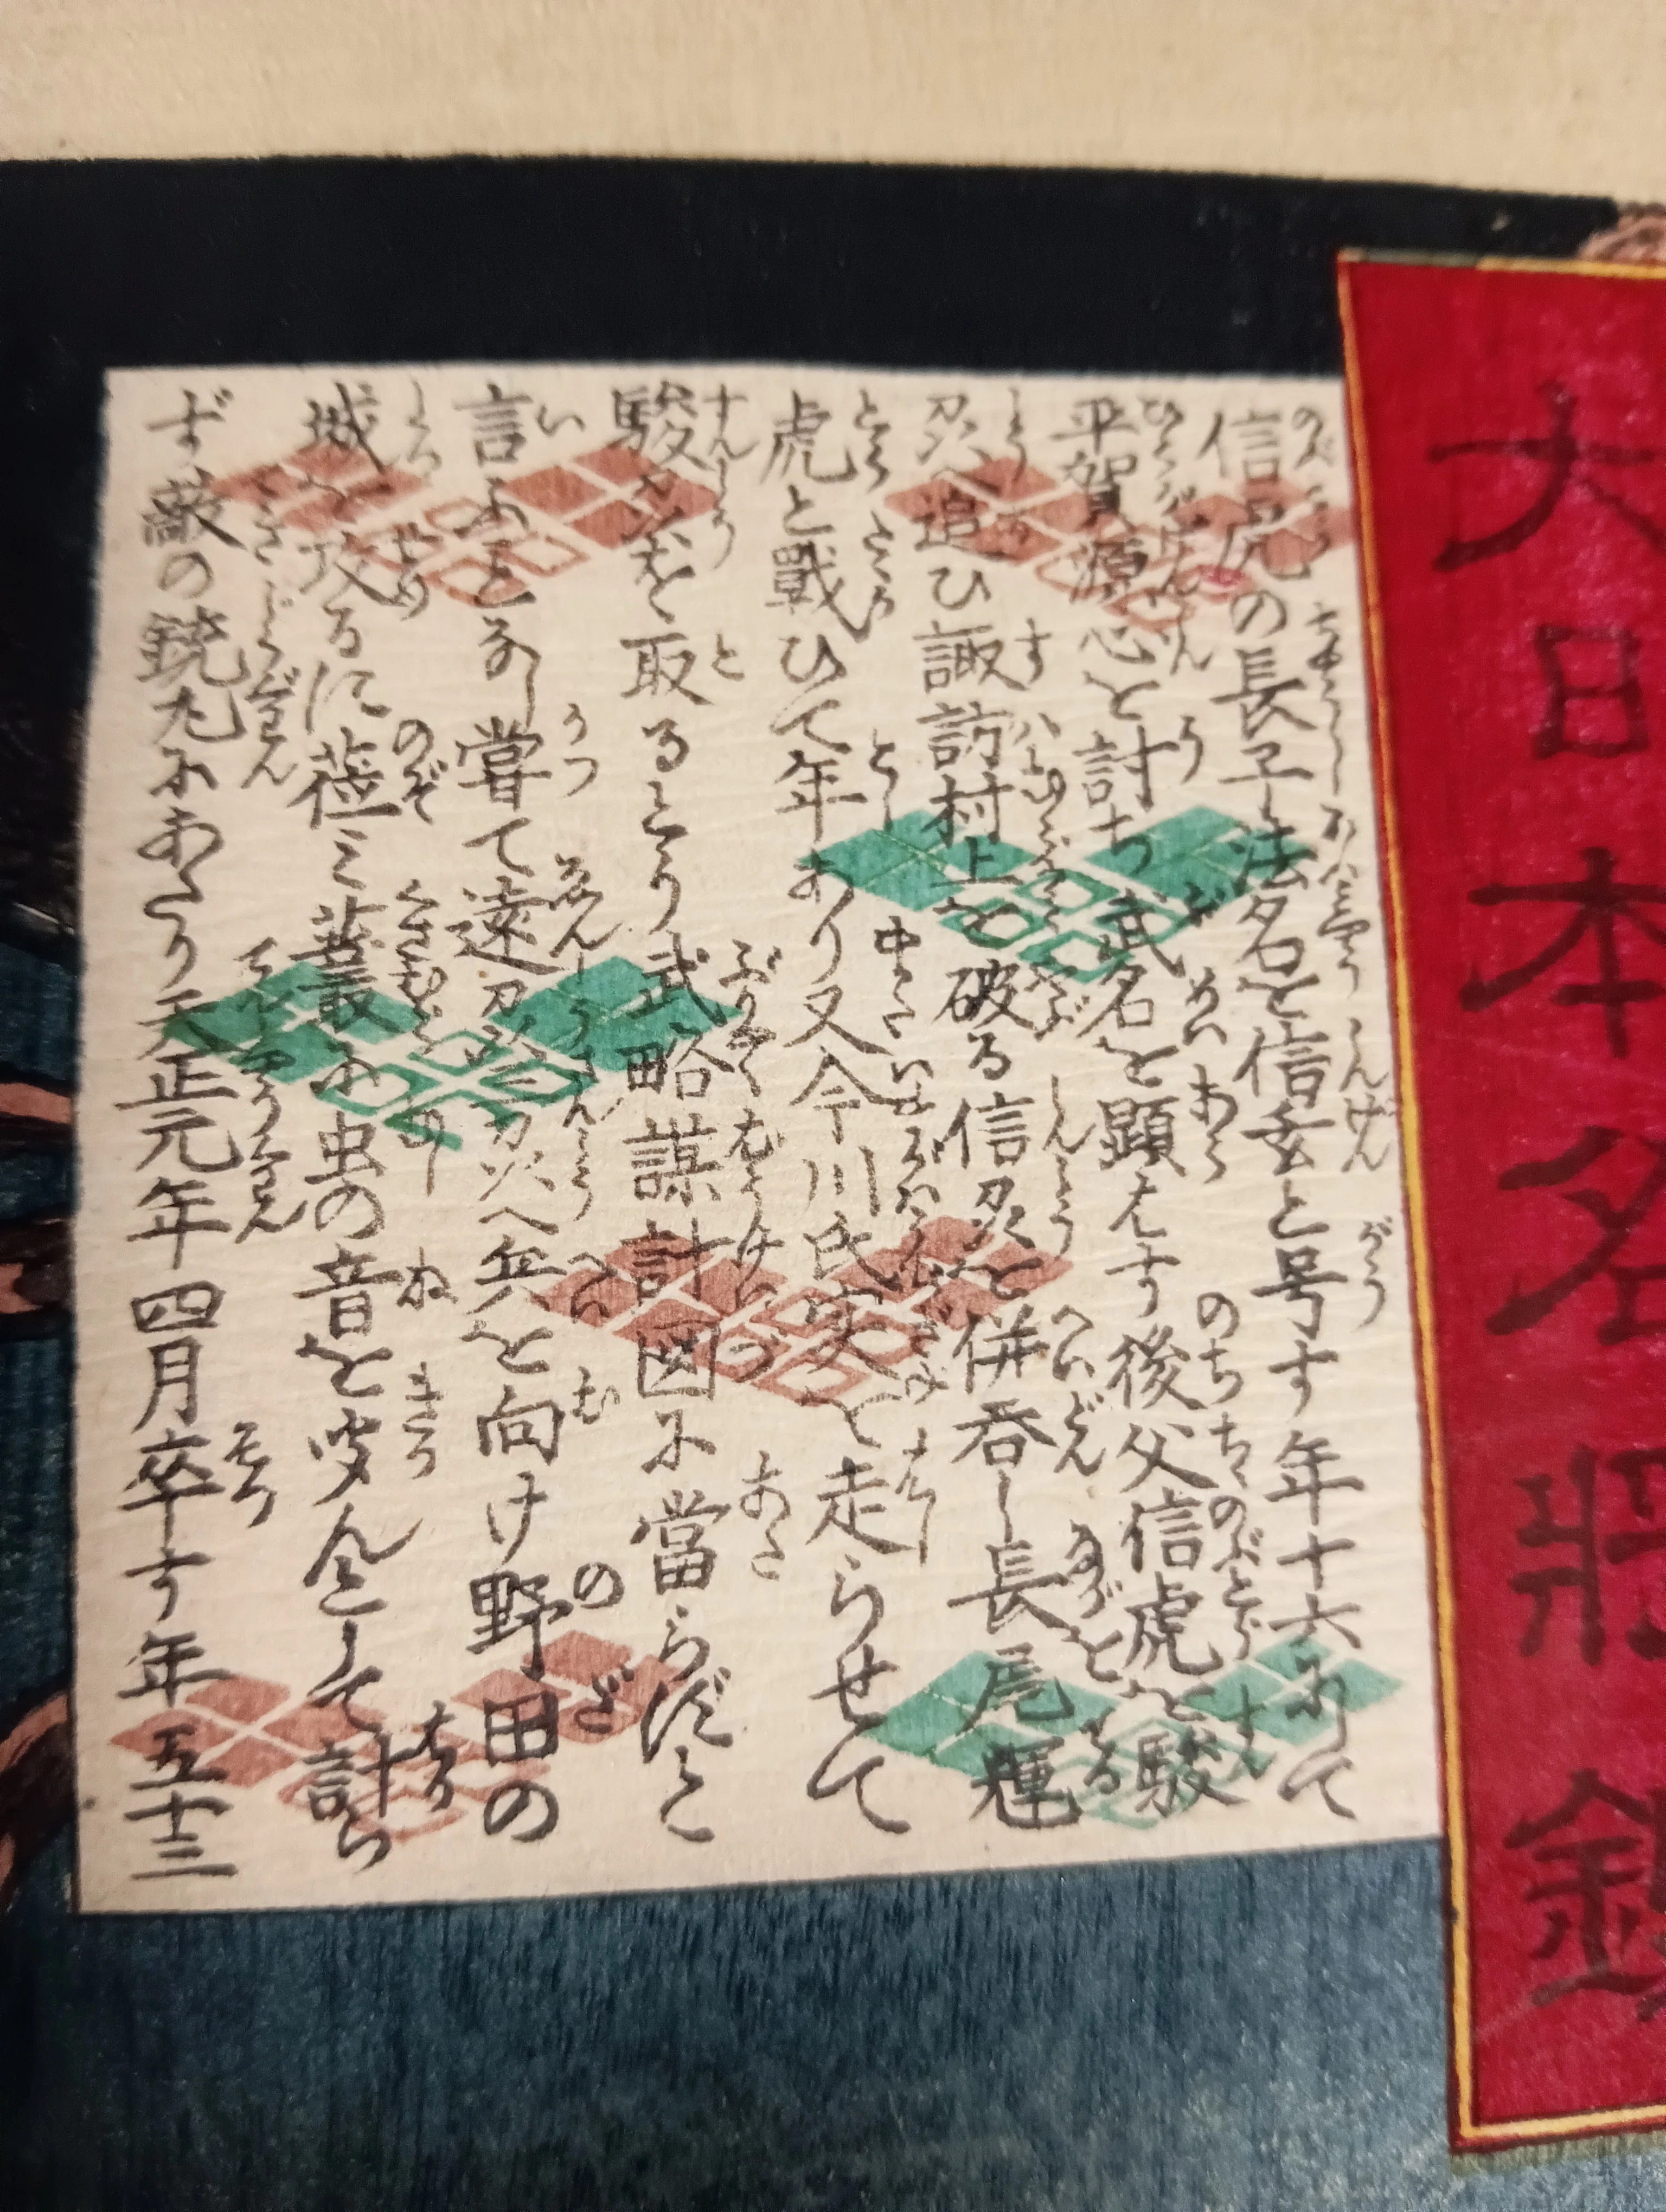 大日本名將鑑
信虎の長子法名を信玄と号す年十六にして
平賀源心を討ち武名を顕はす後父信虎を駿
州へ追ひ諏訪村上を破る信州を併呑し長尾輝
虎と戰ひて年あり又今川氏実を走らせて
駿を取る武略謀計図に當らずと
言ふことなし嘗て遠州三州へ兵を向け野田の
城を攻るに莅ミ叢に虫の音を聞んとして計ら
ず敵の銃丸にあたり天正元年四月卒す年五十三